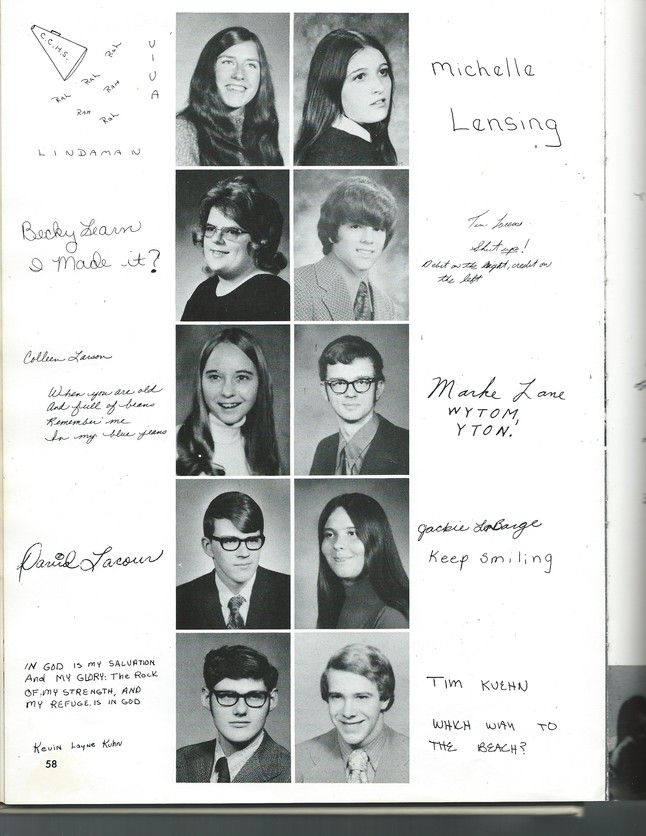 C.C.H.S.
Rah
Rah
Rah
Rah
Rah
Rah
VIVA
LINDAMAN
Michelle
Lensing
Becky Learn
I Made it?
Tim
Shut up!
Debit on the Right, credit on
the left
Colleen Larson
When you are old
And full of beans
Remember me
In my blue jeans
Marke Lane
WYTOM,
YTON.
David Lacour
Jackie LaBarge
Keep smiling
IN GOD IS MY SALVATION
And MY GLORY: The Rock
OF MY STRENGTH, AND
MY REFUGE, IS IN GOD
Kevin Layne Kuhn
TIM KUEHN
WHICH WAY TO
THE BEACH?
58